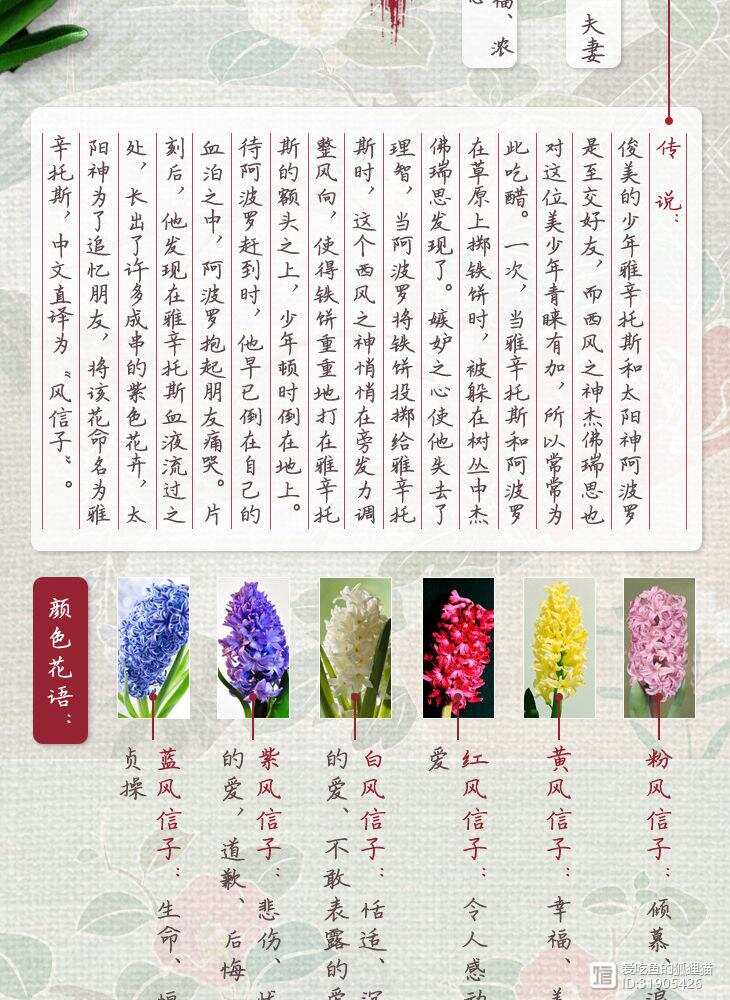 夫妻
、浓
传说：
俊美的少年雅辛托斯和太阳神阿波罗
是至交好友，而西风之神杰佛瑞思也
对这位美少年青睐有加，所以常常为
此吃醋。一次，当雅辛托斯和阿波罗
在草原上掷铁饼时，被躲在树丛中杰
佛瑞思发现了。嫉妒之心使他失去了
理智，当阿波罗将铁饼投掷给雅辛托
斯时，这个西风之神悄悄在旁发力调
整风向，使得铁饼重重地打在雅辛托
斯的额头之上，少年顿时倒在地上。
待阿波罗赶到时，他早已倒在自己的
血泊之中，阿波罗抱起朋友痛哭。片
刻后，他发现在雅辛托斯血液流过之
处，长出了许多成串的紫色花卉，太
阳神为了追忆朋友，将该花命名为雅
辛托斯，中文直译为“风信子”。
颜色花语：
粉风信子：倾慕、浪
黄风信子：幸福、美
红风信子：令人感动
爱
白风信子：恬适、沉
的爱、不敢表露的爱
紫风信子：悲伤、
的爱，道歉、后悔
蓝风信子：生命、
贞操
爱吃鱼的狐狸猫
ID:31905426